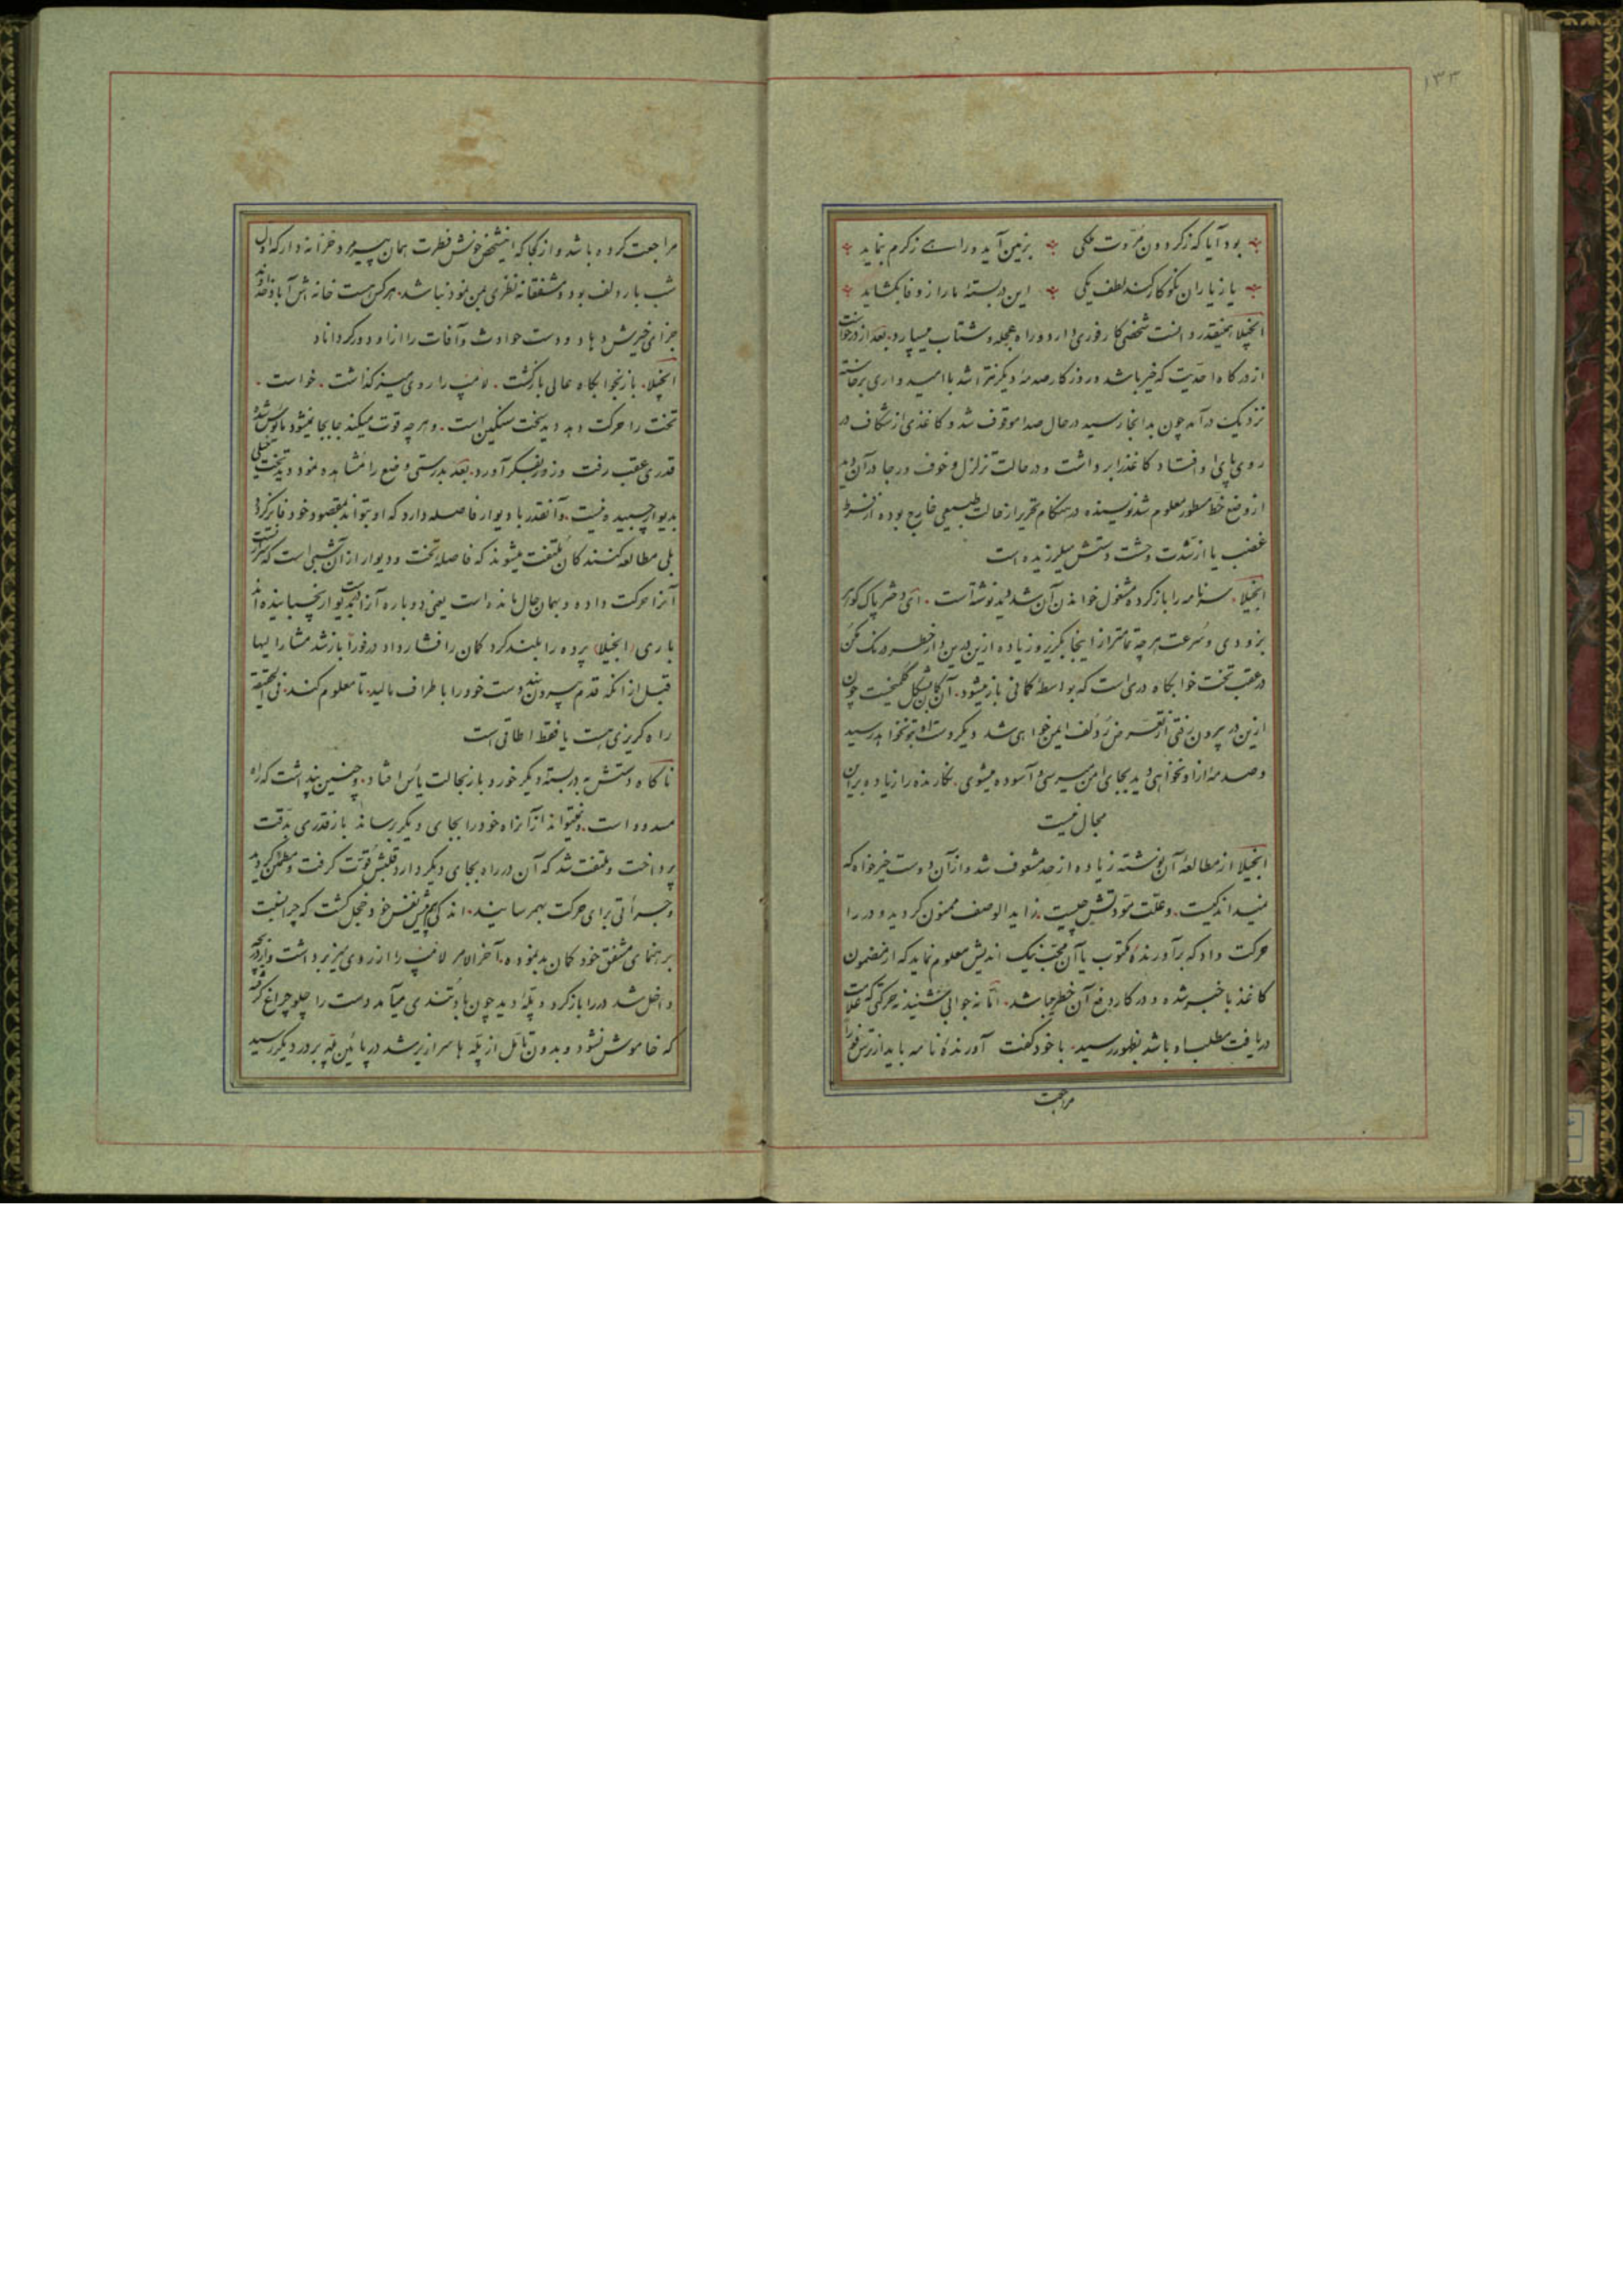 ۱۳۳
بود آیا که ز گردون مروت ملکی بزمین آید و راهی ز کرم بنماید
یا ز یاران نکوکار کند لطف یکی این در بستهٔ ما را ز وفا بگشاید
انجیلا همینقدر دانست شخصی کار فوری دارد و راه بعجله و شتاب میسپارد. بعد از درخواست
از درگاه احدیت که خیر باشد و روزگار صدمهٔ دیگر نتراشد با امیدواری برخاسته
نزدیک در آمد چون بدانجا رسید در حال صدا موقوف شد و کاغذی از شکاف در
روی پای او افتاد کاغذ را برداشت و در حالت تزلزل و خوف و رجا در آن دید
از وضع خط و سطور معلوم شد نویسنده در هنگام تحریر از حالت طبیعی خارج بوده از فرط
غضب یا از شدت وحشت دستش میلرزیده است
انجیلا. سرنامه را باز کرده مشغول خواندن آن شد دید نوشته است. ای دختر پاک گوهر
بزودی و سرعت هرچه تمامتر از اینجا بگریز و زیاده ازین درین دار خطر درنگ مکن
در عقب تخت خوابگاه دری است که بواسطهٔ کمانی باز میشود. آن کمان بشکل گلمیخیست چون
ازین در بیرون رفتی از تعرض ردلف ایمن خواهی شد دیگر دست او بتو نخواهد رسید
و صدمه از او نخواهی دید بجای امن میرسی و آسوده میشوی. نگارنده را زیاده برین
مجال نیست
انجیلا از مطالعهٔ آن نوشته زیاده از حد مشعوف شد و از آن دوست خیرخواه که
نمیداند کیست. و علت مودتش چیست. زاید الوصف ممنون گردید و در را
حرکت داد که بر آورندهٔ مکتوب یا آن محب نیک اندیش معلوم نماید که از مضمون
کاغذ باخبر شده و در کار دفع آن خطر میباشد. اما نه جوابی شنید نه حرکتی که علامت
دریافت مطلب او باشد بظهور رسید. با خود گفت آورندهٔ نامه باید از ترس فوراً
مراجعت
مراجعت کرده باشد و از کجا که این شخص خوش فطرت همان پیرمرد خزانه دار که اول
شب با ردلف بود و مشفقانه نظری بمن نمود نباشد. هر کس هست خانه اش آباد خداوند
جزای خیرش دهاد و دست حوادث و آفات را از او دور گرداناد
انجیلا. باز بخوابگاه عالی بازگشت. لامپ را روی میز گذاشت. خواست.
تخت را حرکت دهد دید تخت سنگین است. و هر چه قوت میکند جابجا نمیشود مایوس شده
قدری عقب رفت و زور بفکر آورد. بعد بدرستی وضع را مشاهده نمود دید تخت خیلی
بدیوار چسبیده نیست. و آنقدر با دیوار فاصله دارد که او بتواند بمقصود خود فایز گردد
بلی مطالعه کنندگان ملتفت میشوند که فاصلهٔ تخت و دیوار از آن شبی است که
آنرا حرکت داده و بهمان حال مانده است یعنی دوباره آنرا درست بدیوار نچسبانیده اند
باری (انجیلا) پرده را بلند کرد کمان را فشار داد در فوراً باز شد مشارالیها
قبل از آنکه قدم بیرون نهد دست خود را با طراف مالید. تا معلوم کند. فی الحقیقه
راه گریزی هست یا فقط اطاقی است
ناگاه دستش به در بسته دیگر خورد باز بحالت یأس افتاد. و چنین پنداشت که راه
مسدود است. و نمیتواند از آن راه خود را بجای دیگر برساند باز قدری بدقت
پرداخت و ملتفت شد که آن در راه بجای دیگر دارد قلبش قوت گرفت و مطمئن گردید
و جرأتی برای حرکت بهمرسانید. اندکی هم پیش نفس خود خجل گشت که چرا نسبت
برهنمای مشفق خود گمان بد نموده. آخر الامر لامپ را از روی میز برداشت و از در
داخل شد در را باز کرد و پله دید چون باد تندی میآمد دست را جلو چراغ گرفت
که خاموش نشود و بدون تأمل از پله ها سرازیر شد در پائین پله بر در دیگر رسید